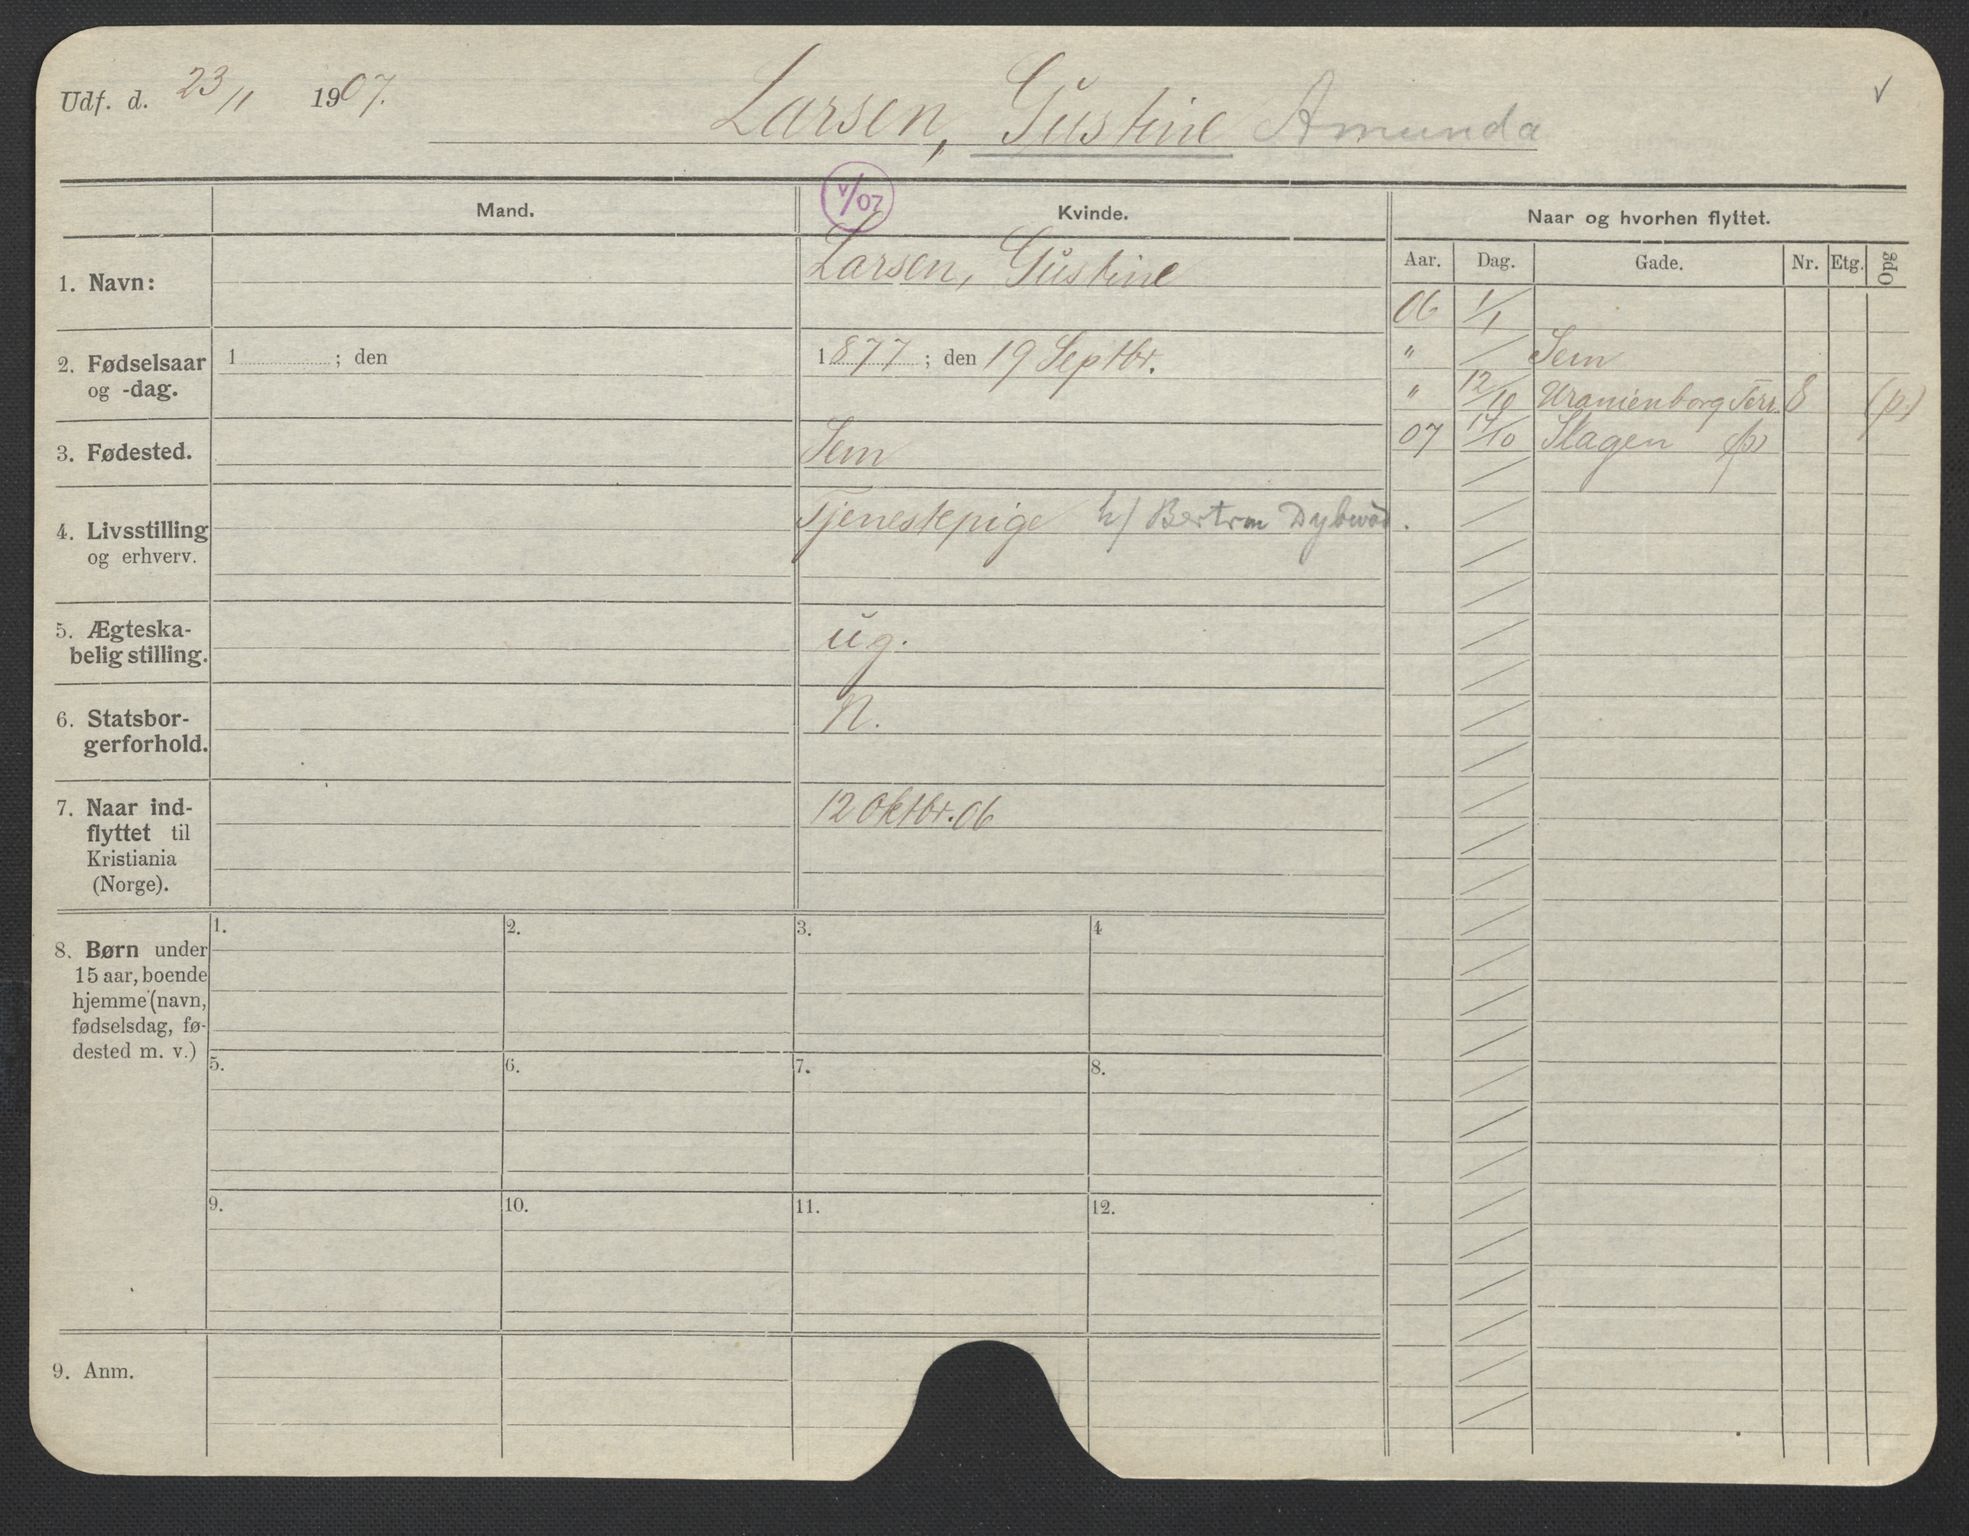 Udf. d. 23/11 1907.
Larsen, Gustine Amunda
v/07
Mand.
Kvinde.
Naar og hvorhen flyttet.
Aar. Dag. Gade. Nr. Etg. Opg
1. Navn:
Larsen, Gustine
06 1/1
2. Fødselsaar
og -dag.
1 ; den
1877 ; den 19 Septbr.
" Sem
" 12/10 Uranienborg Terr. 8 (p)
3. Fødested.
Sem
07 17/10 Slagen (p)
4. Livsstilling
og erhverv.
Tjenestepige h/ Bertrm Dybwad.
5. Ægteska-
belig stilling.
ug.
6. Statsbor-
gerforhold.
N.
7. Naar ind-
flyttet til
Kristiania
(Norge).
12 Oktbr. 06
8. Børn under
15 aar, boende
hjemme (navn,
fødselsdag, fø-
dested m. v.)
1. 2. 3. 4
5. 6. 7. 8.
9. 10. 11. 12.
9. Anm.